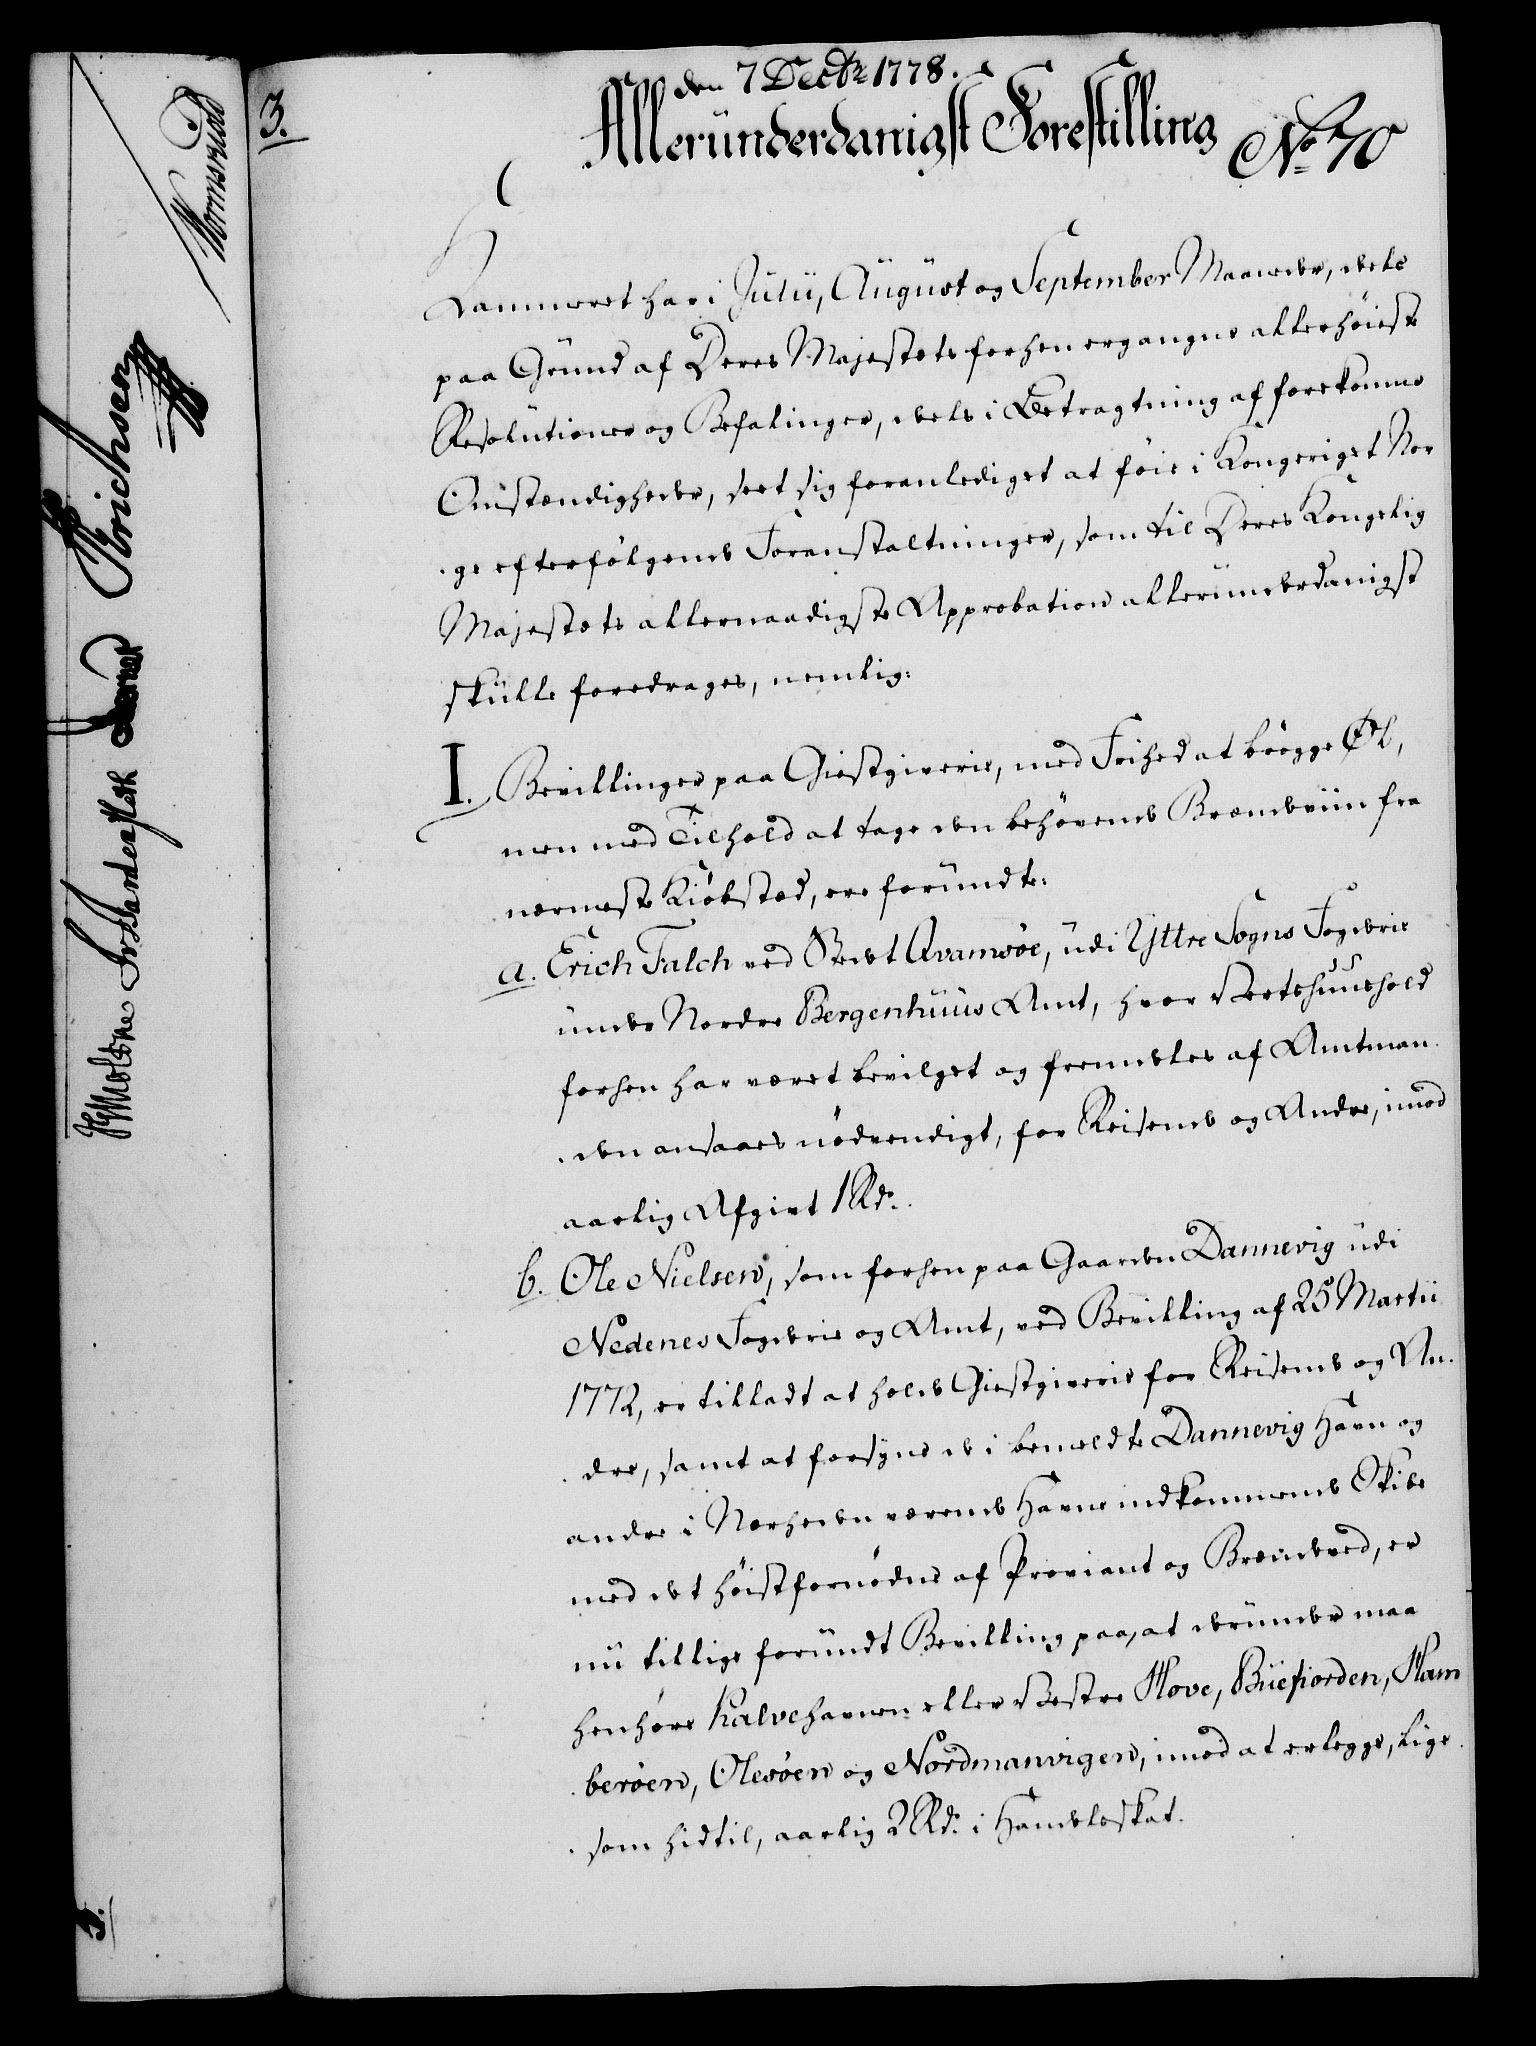 3.
den 7 Decbr 1778.
Allerunderdanigst Forestilling
No 70
Kammeret har i Julii, August og September Maaneder, dels
paa Grund af Deres Majestets forhen ergangne allerhöieste
Resolutioner og Befalinger, dels i Betragtning af forekomne
Omstændigheder, seet sig foranlediget at föie i Kongeriget Nor
ge efterfölgende Foranstaltninger, som til Deres Kongelig
Majestets allernaadigste Approbation allerunderdanigst
skulle foredrages, nemlig:
I. Bevillinger paa Giestgiverie, med Frihed at brögge Øl,
men med Tilhold at tage den behövende Brændeviin fra
nærmeste Kiöbsted, ere forundte:
a. Erich Falch ved Stedet Qvamsöe, udi Yttre Sogns Fogderie
under Nordre Bergenhuus Amt, hvor Vertshuushold
forhen har været bevilget og fremdeles af Amtman
den ansaaes nödvendigt, for Reisende og Andre, imod
aarlig Afgivt 1 Rdr.
b. Ole Nielsen, som forhen paa Gaarden Dannevig udi
Nedenes Fogderie og Amt, ved Bevilling af 25 Martii
1772, er tilladt at holde Giestgiverie for Reisende og An
dre, samt at forsyne de i bemeldte Dannevig Havn og
andre i Nærheden værende Havne indkommende Skibe
med det höistfornödne af Proviant og Brændeved, er
nu tillige forundt Bevilling paa, at derunder maa
henhöre Kalvehavnen eller Vestre Hove, Buefiorden, Ham
beröen, Olesöen og Nordmanvigen, imod at erlegge, lige
som hidtil, aarlig 2 Rdr. i Handelsskat.